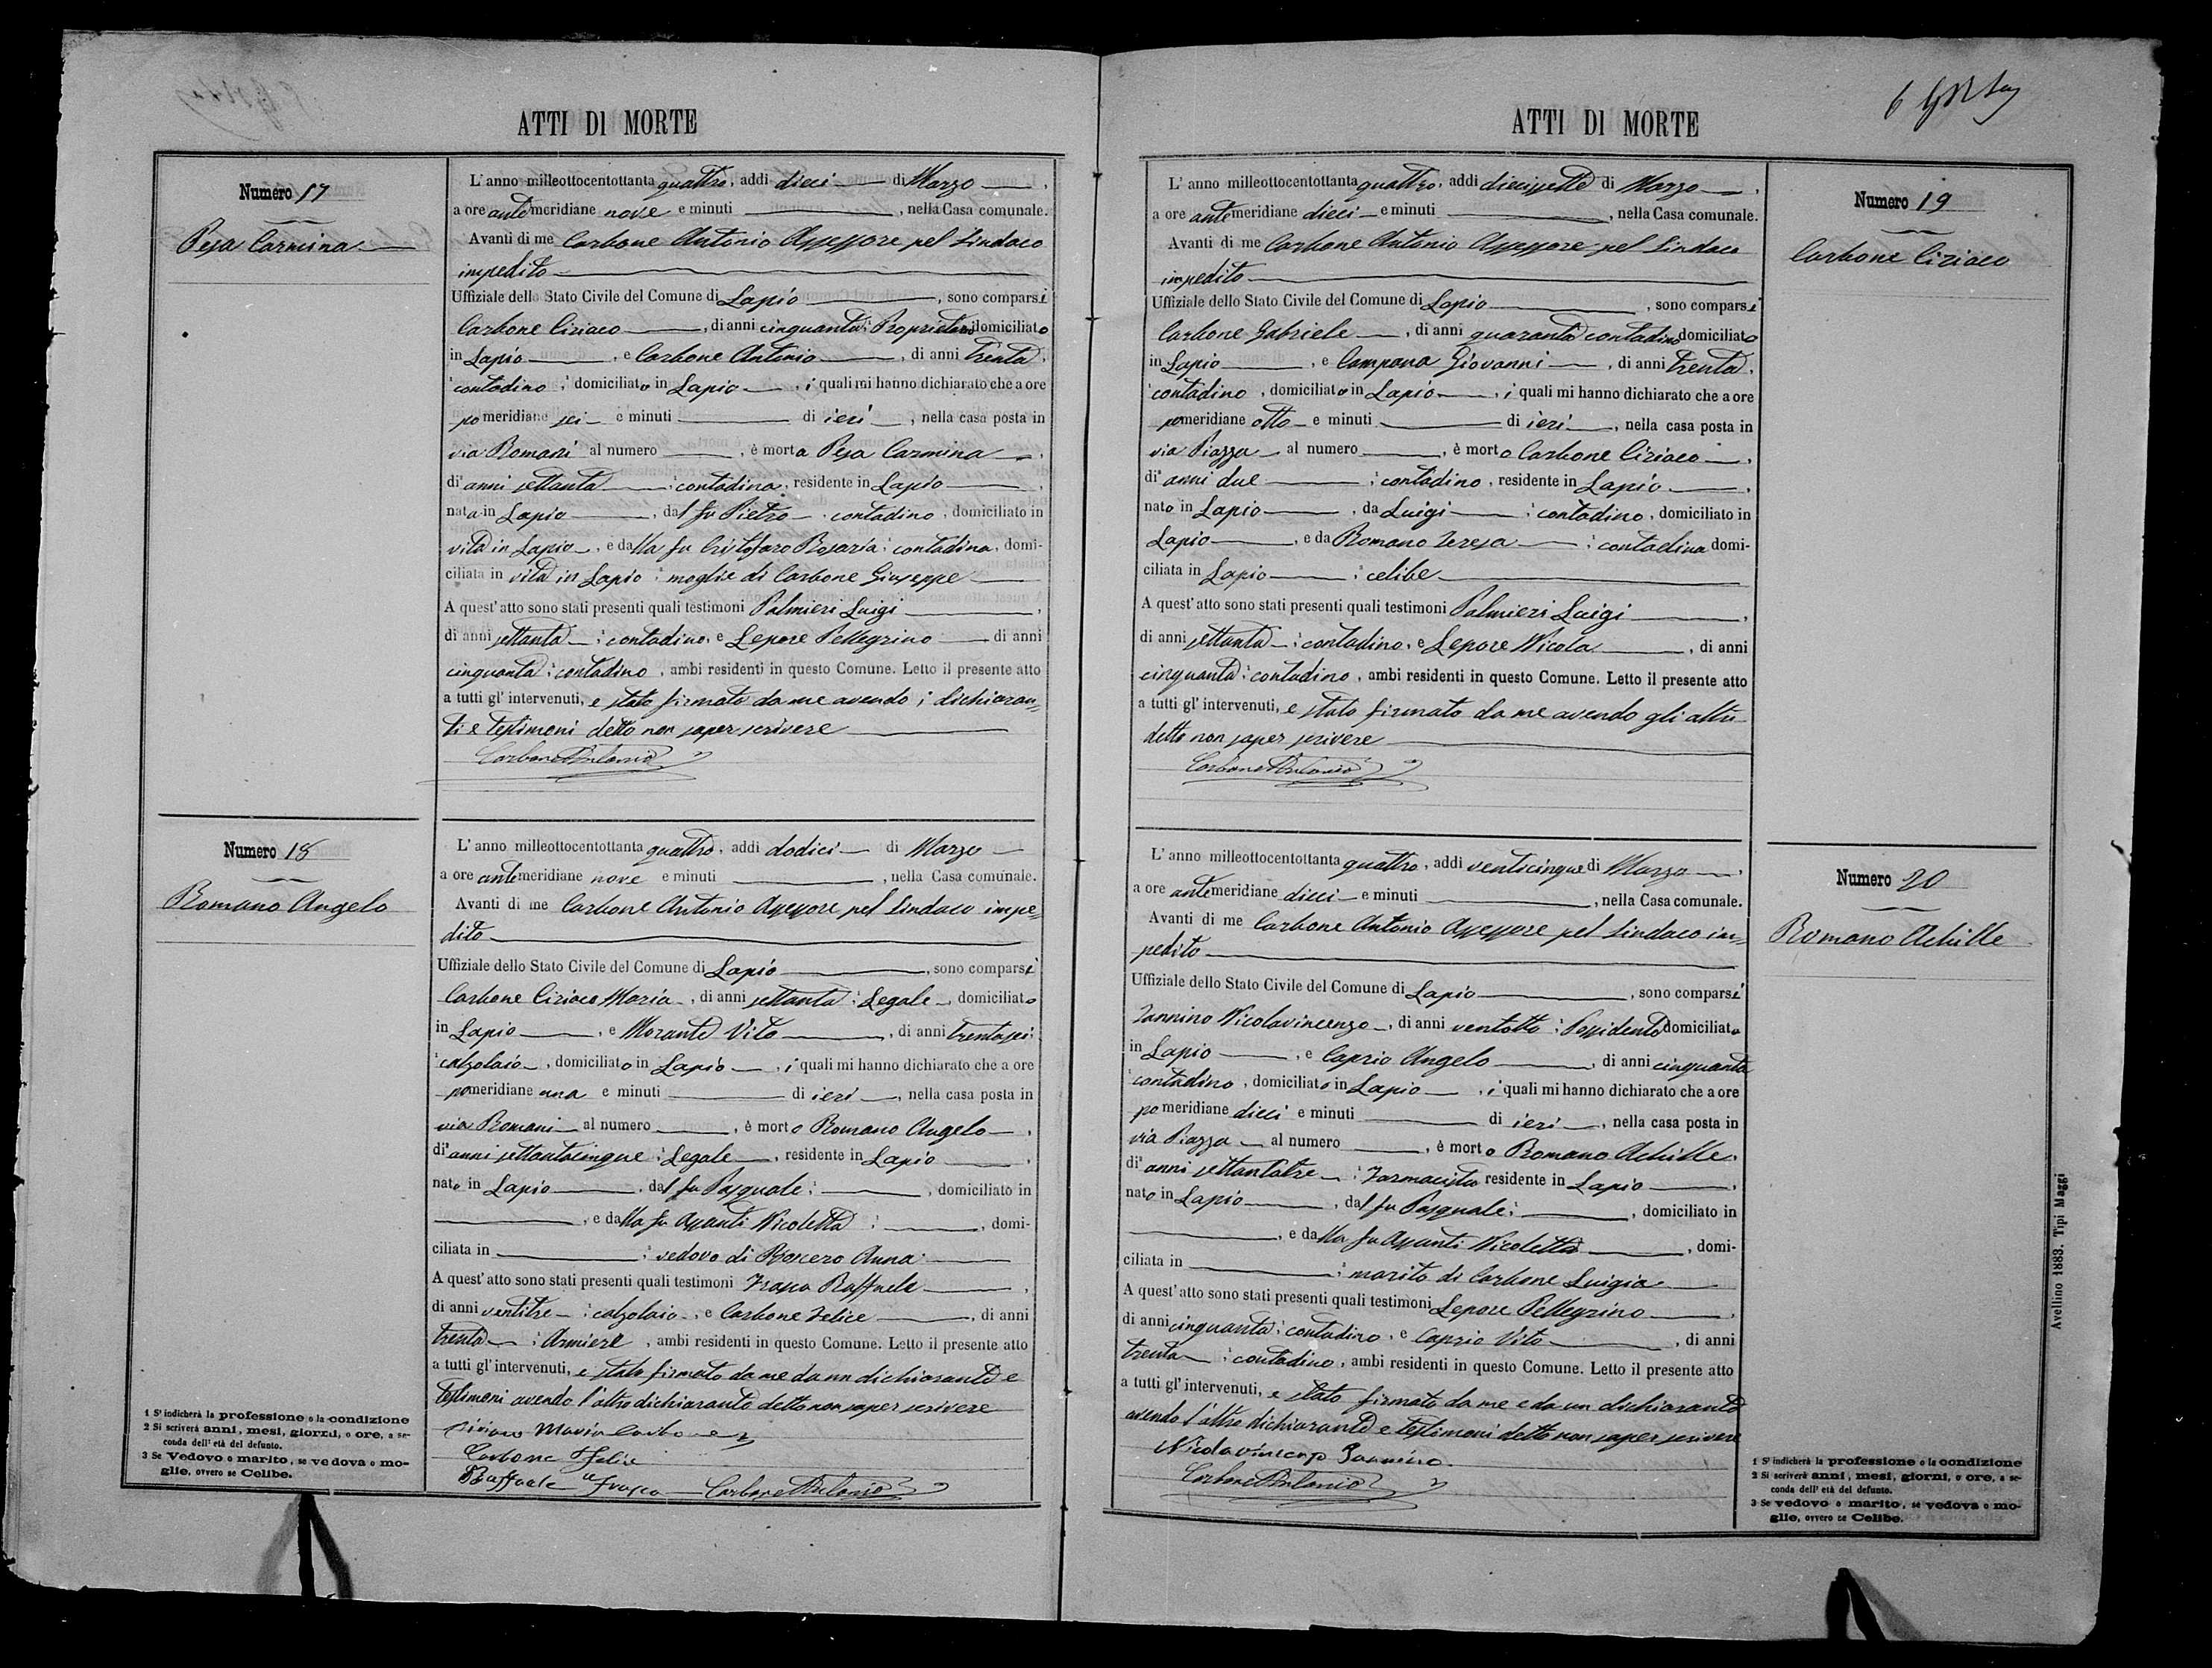 ATTI DI MORTE
Numero 17
Pesa Carmina
L'anno milleottocentottanta quattro, addi dieci di Marzo,
a ore antemeridiane nove e minuti , nella Casa comunale.
Avanti di me Carbone Antonio Assessore pel Sindaco
impedito
Uffiziale dello Stato Civile del Comune di Lapio , sono comparsi
Carbone Ciriaco , di anni cinquanta, Proprietario domiciliato
in Lapio , e Carbone Antonio , di anni trenta,
contadino, domiciliato in Lapio , i quali mi hanno dichiarato che a ore
pomeridiane sei e minuti di ieri , nella casa posta in
via Romani al numero , è morta Pesa Carmina ,
di anni settanta , contadina, residente in Lapio ,
nata in Lapio , dal fu Pietro , contadino, domiciliato in
vita in Lapio , e dalla fu Cristofaro Rosaria, contadina, domi-
ciliata in vita in Lapio, moglie di Carbone Giuseppe
A quest'atto sono stati presenti quali testimoni Palmieri Luigi ,
di anni settanta , contadino, e Lepore Pellegrino di anni
cinquanta, contadino, ambi residenti in questo Comune. Letto il presente atto
a tutti gl'intervenuti, e stato firmato da me avendo i dichiaran-
ti e testimoni detto non saper scrivere
Carbone Antonio
Numero 18
Romano Angelo
L'anno milleottocentottanta quattro, addi dodici di Marzo
a ore antemeridiane nove e minuti , nella Casa comunale.
Avanti di me Carbone Antonio Assessore pel Sindaco impe-
dito
Uffiziale dello Stato Civile del Comune di Lapio , sono comparsi
Carbone Ciriaco Maria , di anni settanta, Legale , domiciliato
in Lapio , e Morante Vito , di anni trentasei,
calzolaio , domiciliato in Lapio , i quali mi hanno dichiarato che a ore
pomeridiane una e minuti di ieri , nella casa posta in
via Romani al numero , è morto Romano Angelo ,
di anni settantacinque, Legale , residente in Lapio ,
nato in Lapio , dal fu Pasquale, , domiciliato in
, e dalla fu Assanti Nicoletta, , domi-
ciliata in , vedovo di Anna
A quest'atto sono stati presenti quali testimoni Frasca Raffaele ,
di anni ventitre , calzolaio , e Carbone Felice , di anni
trenta , Armiere , ambi residenti in questo Comune. Letto il presente atto
a tutti gl'intervenuti, e stato firmato da me da un dichiarante e
testimoni avendo l'altro dichiarante detto non saper scrivere
Ciriaco Maria Carbone
Carbone Felice
Raffaele Frasca Carbone Antonio
1 S'indicherà la professione o la condizione
2 Si scriverà anni, mesi, giorni, o ore, a se-
conda dell'età del defunto.
3 Se vedovo o marito, se vedova o mo-
glie, ovvero se Celibe.
ATTI DI MORTE
6
Numero 19
Carbone Ciriaco
L'anno milleottocentottanta quattro, addi diecissette di Marzo ,
a ore antemeridiane dieci e minuti , nella Casa comunale.
Avanti di me Carbone Antonio Assessore pel Sindaco
impedito
Uffiziale dello Stato Civile del Comune di Lapio , sono comparsi
Carbone Gabriele , di anni quaranta contadino domiciliato
in Lapio , e Campana Giovanni , di anni trenta,
contadino, domiciliato in Lapio , i quali mi hanno dichiarato che a ore
pomeridiane otto e minuti di ieri , nella casa posta in
via Piazza al numero , è morto Carbone Ciriaco ,
di anni due , contadino, residente in Lapio ,
nato in Lapio , da Luigi , contadino, domiciliato in
Lapio , e da Romano Teresa , contadina domi-
ciliata in Lapio , celibe
A quest'atto sono stati presenti quali testimoni Palmieri Luigi ,
di anni settanta , contadino, e Lepore Nicola , di anni
cinquanta, contadino, ambi residenti in questo Comune. Letto il presente atto
a tutti gl'intervenuti, e stato firmato da me avendo gli altri
detto non saper scrivere
Carbone Antonio
Numero 20
Romano Achille
L'anno milleottocentottanta quattro, addi venticinque di Marzo ,
a ore antemeridiane dieci e minuti , nella Casa comunale.
Avanti di me Carbone Antonio Assessore pel Sindaco im-
pedito
Uffiziale dello Stato Civile del Comune di Lapio , sono comparsi
Iannino Nicolavincenzo , di anni ventotto, Possidente domiciliato
in Lapio , e Caprio Angelo , di anni cinquanta
contadino, domiciliato in Lapio , i quali mi hanno dichiarato che a ore
pomeridiane dieci e minuti di ieri , nella casa posta in
via Piazza al numero , è morto Romano Achille,
di anni settantatre , Farmacista residente in Lapio ,
nato in Lapio , dal fu Pasquale, , domiciliato in
, e dalla fu Assanti Nicoletta , domi-
ciliata in , marito di Carbone Luigia
A quest'atto sono stati presenti quali testimoni Lepore Pellegrino ,
di anni cinquanta, contadino, e Caprio Vito , di anni
trenta , contadino, ambi residenti in questo Comune. Letto il presente atto
a tutti gl'intervenuti, e stato firmato da me e da un dichiarante
avendo l'altro dichiarante e testimoni detto non saper scrivere
Nicolavincenzo Iannino
Carbone Antonio
1 S'indicherà la professione o la condizione
2 Si scriverà anni, mesi, giorni, o ore, a se-
conda dell'età del defunto.
3 Se vedovo o marito, se vedova o mo-
glie, ovvero se Celibe.
Avellino 1883. Tipi Maggi